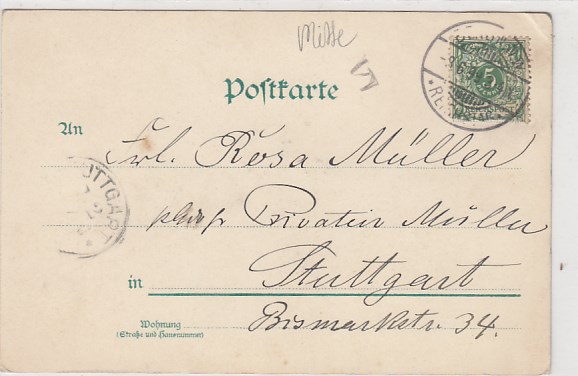 Mitte
Postkarte
An
Frl. Rosa Müller
Privatier Müller
in
Stuttgart
Wohnung
(Straße und Hausnummer)
Bismarkstr. 34.
5